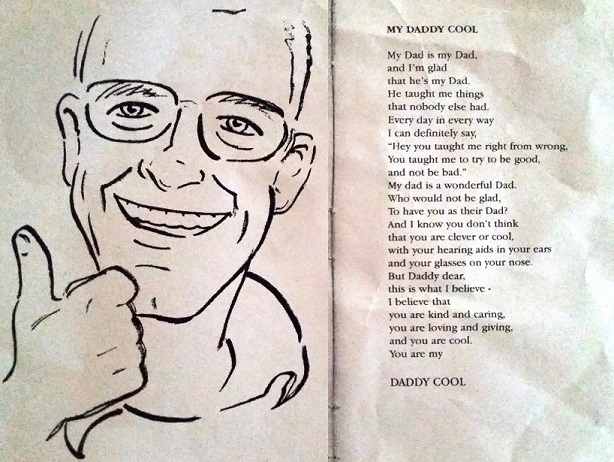 MY DADDY COOL
My Dad is my Dad,
and I'm glad
that he's my Dad.
He taught me things
that nobody else had.
Every day in every way
I can definitely say,
"Hey you taught me right from wrong,
You taught me to try to be good,
and not be bad."
My dad is a wonderful Dad.
Who would not be glad,
To have you as their Dad?
And I know you don't think
that you are clever or cool,
with your hearing aids in your ears
and your glasses on your nose.
But Daddy dear,
this is what I believe -
I believe that
you are kind and caring,
you are loving and giving,
and you are cool.
You are my
DADDY COOL